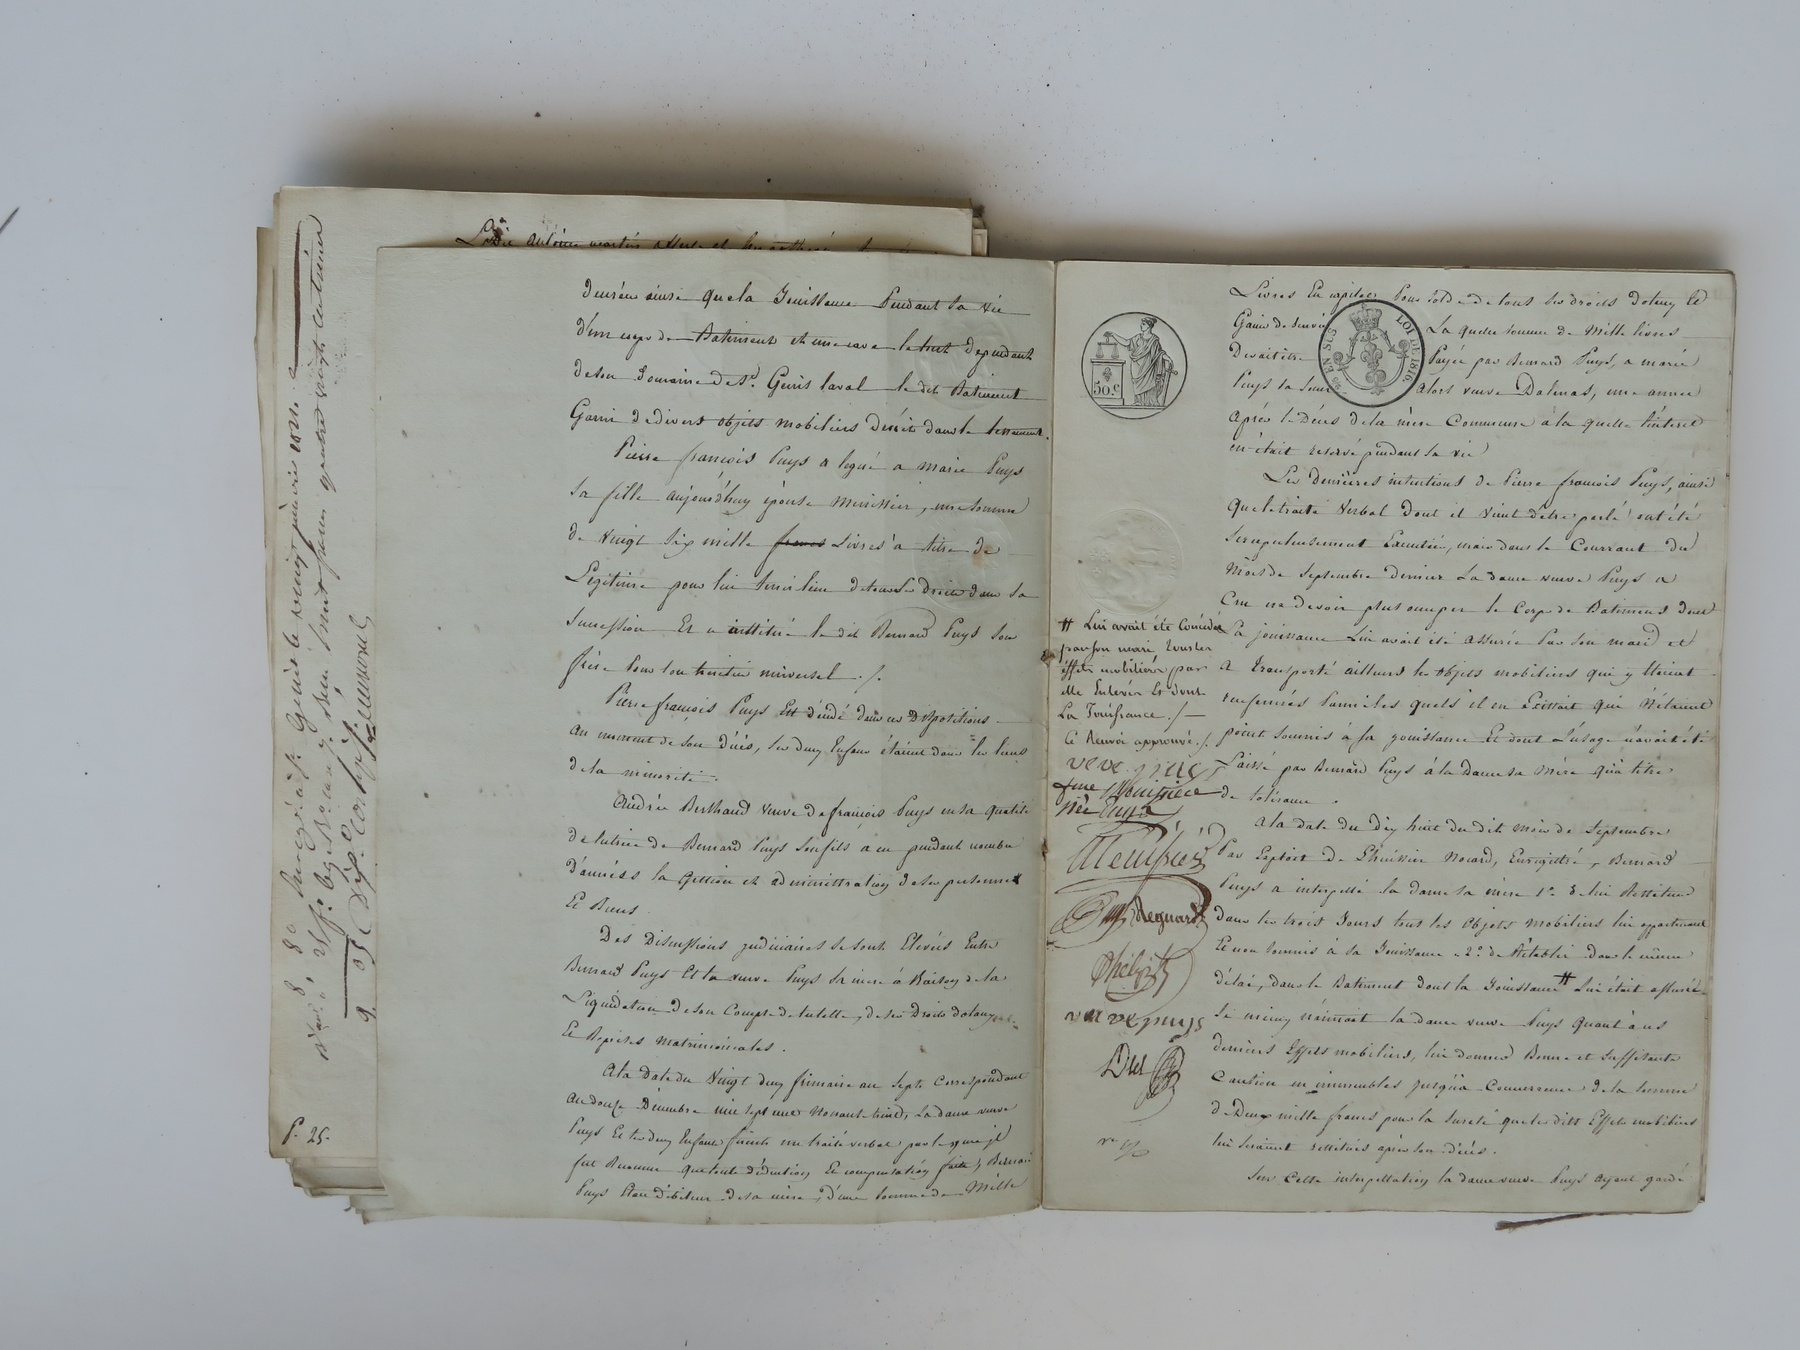 denrées ainsi que la Jouissance Pendant sa vie
d'un corps de Batiment et une cave le tout dependant
de son Domaine de St. Genis laval le dit Batiment
Garni de divers objets mobiliers décrits dans le testament.
Pierre françois Puys a legué a marie Puys
sa fille aujourd'huy épouse Meussier, une somme
de vingt six mille francs Livres a titre de
Légitime pour lui tenir lieu de tous ses droits dans sa
Succession Et a institué le dit Bernard Puys son
frère Pour son héritier universel ./.
Pierre françois Puys Est décédé dans ces Dispositions.
Au moment de son décès, ses deux Enfans étaient dans les liens
de la minorité.
Andrée Berthaud veuve de françois Puys en sa qualité
de tutrice de Bernard Puys son fils a eu pendant nombre
d'années la Gestion et administration de ses personnes
Et Biens.
Des Discussions judiciaires se sont Elevées Entre
Bernard Puys Et la veuve Puys sa mère à Raison de la
Liquidation de son Compte de tutelle, de ses Droits dotaux
Et Reprises matrimoniales.
A la Date du Vingt deux frimaire an sept Correspondant
au douze Décembre mil sept cent Nonante huit, la dame veuve
Puys Et ses deux Enfans firent un traité verbal par lequel il
fut Reconnu que toute déduction Et compensation faite, Bernard
Puys Etait débiteur de sa mère, d'une somme de Mille
Livres En capital Pour solde de tous ses droits dotaux Et
Gains de survie La quelle somme de Mille livres
Devait être Payée par Bernard Puys, a marie
Puys sa sœur alors veuve Dalmas, une année
après le Décès de la mère Commune à la quelle l'intérêt
en était reservé pendant sa vie
Les dernières intentions de Pierre françois Puys, ainsi
que le traité verbal dont il vient d'être parlé ont été
scrupuleusement Executées, mais dans le Courrant du
Mois de Septembre dernier La dame veuve Puys a
Cru ne devoir plus occuper le Corps de Batimens dont
La jouissance Lui avait été assurée Par son mari et
a transporté ailleurs les objets mobiliers qui y étaient
renfermés Parmi les quels il en Existait qui n'étaient
point soumis à sa jouissance Et dont L'usage n'avait été
Laissé par Bernard Puys à la dame sa mère qu'à titre
de tolérance.
A la date du Dix huit du dit mois de Septembre
Par Exploit de L'huissier Nocard, Enregistré, Bernard
Puys a interpellé la dame sa mère 1°. de lui Restituer
dans les trois Jours tous les objets mobiliers lui appartenant
Et non soumis à sa Jouissance 2°. de Rétablir dans le même
délai, dans le Batiment dont la Jouissance # Lui était assurée
Si mieux n'aimait la dame veuve Puys quant à ces
derniers Effets mobiliers, lui donner Bonne et suffisante
Caution en immeubles jusqu'à Concurrence de la somme
de Deux mille francs pour la sureté que les dits Effets mobiliers
lui seraient restitués après son décès.
Sur Cette interpellation la dame veuve Puys ayant gardé
# Lui avait été Concédée
par son mari, tous les
effets mobiliers par
elle Enlevés Et dont
La Jouissance ./.
Ce Renvoi approuvé ./.
veve puys
fme Meussieu
née Puys
Meussieu
Puys Regnard
veuve puys
50.c
EN SUS
LOI DE 1816.
P. 25.